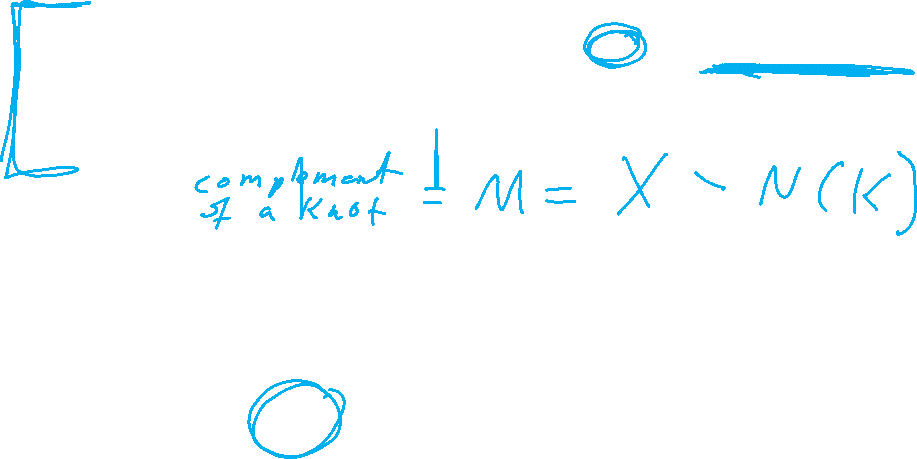 complement
of a knot ≐ M = X ∖ N(K)